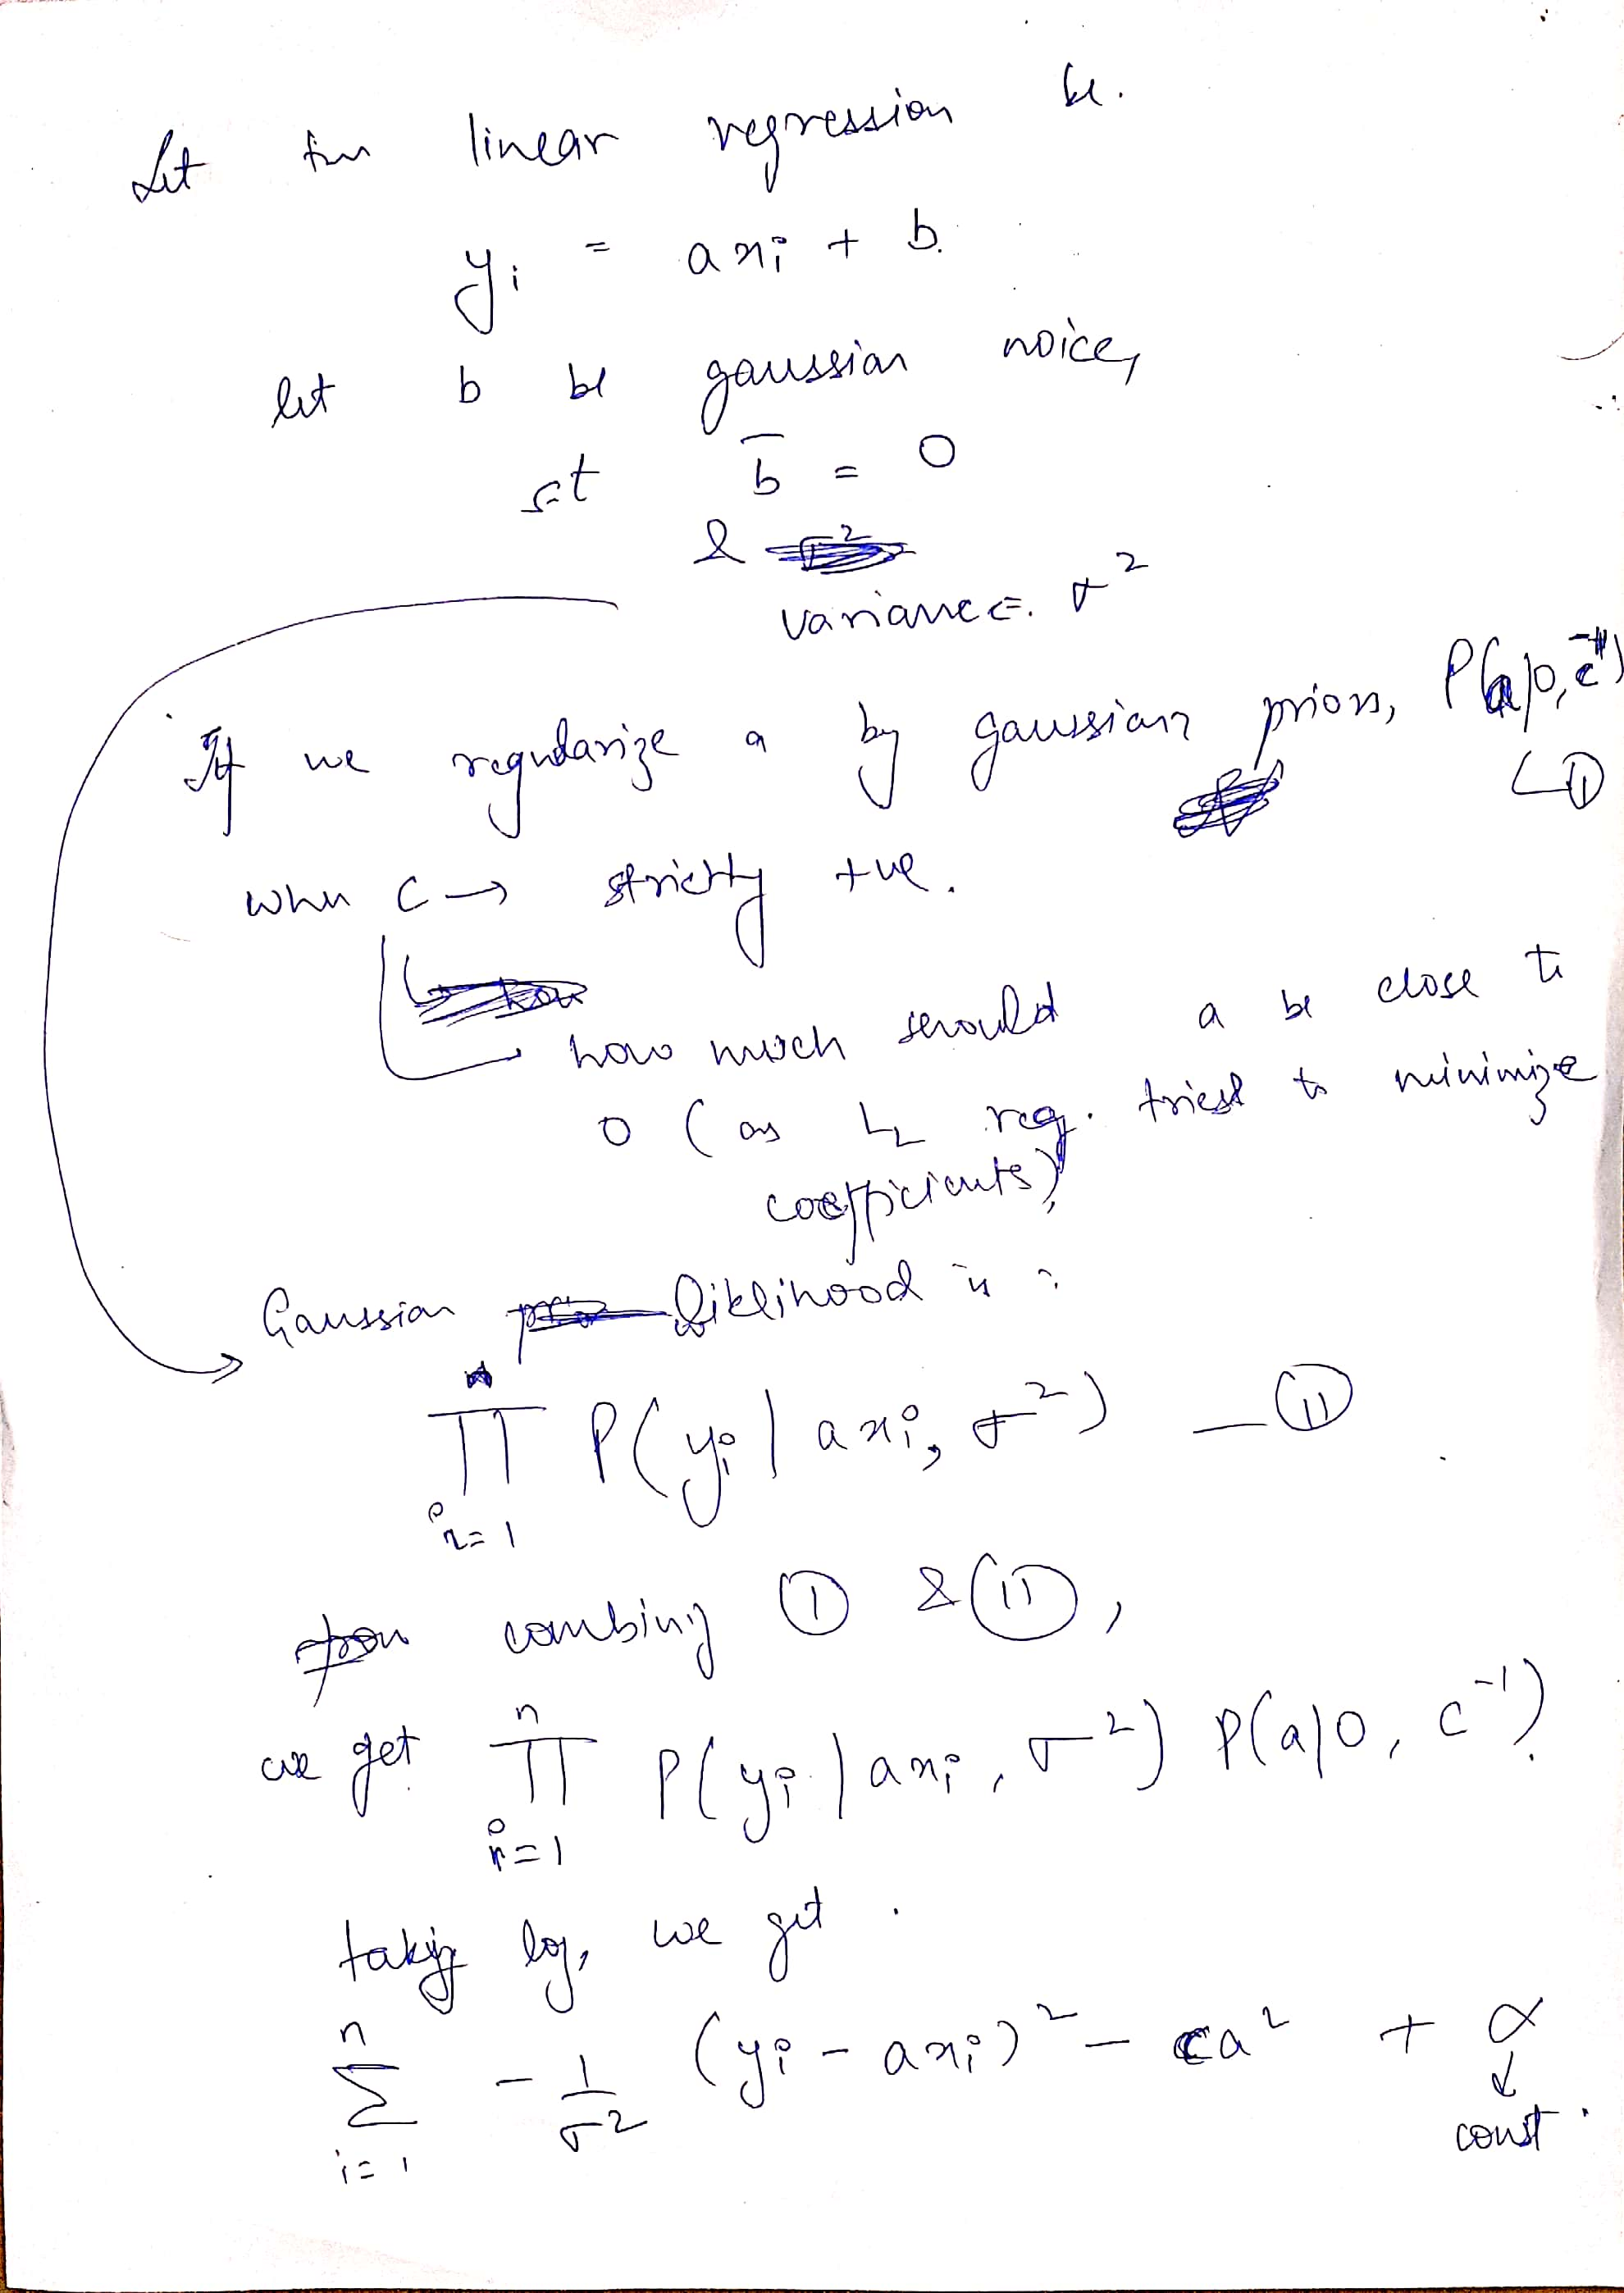 Let the linear regression be.
yi = axi + b.
let b be gaussian noice,
s.t b̄ = 0
&
variance = σ²
If we regularize a by gaussian priors, P(a|0, c⁻¹)
↳ ①
when c → strictly +ve.
↳ how much should a be close to
0 (as L₂ reg. tries to minimize
coefficients)
Gaussian liklihood is :
n
∏ P(yi | axi, σ²) — ⓘⓘ
i=1
combing ① & ⓘⓘ,
we get n
∏ P(yi | axi, σ²) P(a|0, c⁻¹)
i=1
taking log, we get .
n
Σ - 1/σ² (yi - axi)² - ca² + α
i=1
↓
const.